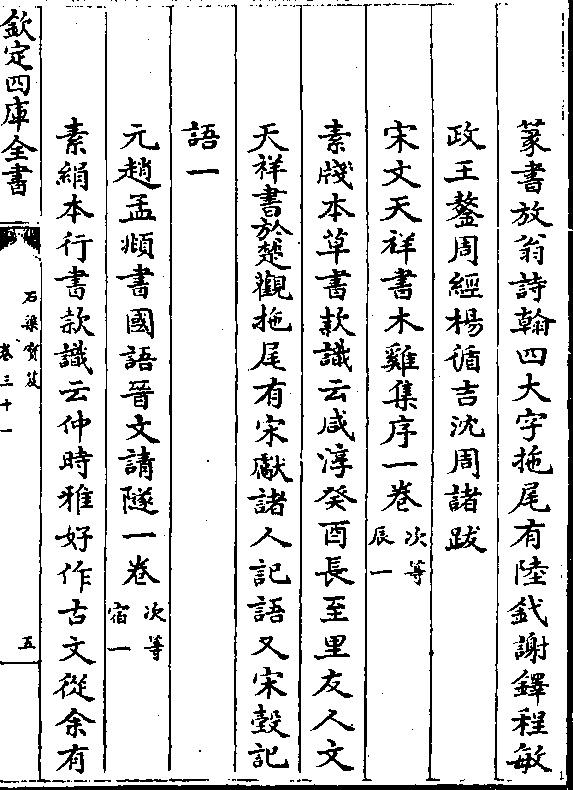 篆書放翁詩翰四大字拖尾有陸釴謝鐸程敏
政王鏊周經楊循吉沈周諸跋
宋文天祥書木雞集序一卷 次等辰一
素牋本草書款識云咸淳癸酉長至里友人文
天祥書於楚觀拖尾有宋獻諸人記語又宋瑴記
語一
元趙孟頫書國語晉文請隧一卷 次等宿一
素絹本行書款識云仲時雅好作古文從余有
欽定四庫全書
石渠寶笈
卷三十一
五